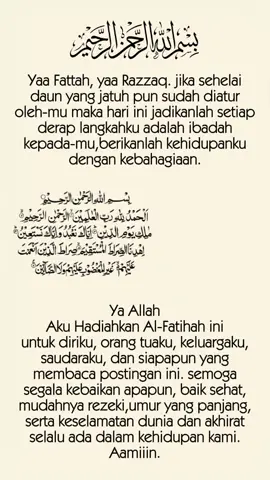 بِسْمِ اللهِ الرَّحْمٰنِ الرَّحِيْمِ
Yaa Fattah, yaa Razzaq. jika sehelai
daun yang jatuh pun sudah diatur
oleh-mu maka hari ini jadikanlah setiap
derap langkahku adalah ibadah
kepada-mu,berikanlah kehidupanku
dengan kebahagiaan.
بِسْمِ اللهِ الرَّحْمٰنِ الرَّحِيْمِ
اَلْحَمْدُ لِلّٰهِ رَبِّ الْعٰلَمِيْنَ الرَّحْمٰنِ الرَّحِيْمِ
مٰلِكِ يَوْمِ الدِّيْنِ اِيَّاكَ نَعْبُدُ وَاِيَّاكَ نَسْتَعِيْنُ
اِهْدِنَا الصِّرَاطَ الْمُسْتَقِيْمَ صِرَاطَ الَّذِيْنَ اَنْعَمْتَ
عَلَيْهِمْ غَيْرِ الْمَغْضُوْبِ عَلَيْهِمْ وَلَا الضَّاۤلِّيْنَ
Ya Allah
Aku Hadiahkan Al-Fatihah ini
untuk diriku, orang tuaku, keluargaku,
saudaraku, dan siapapun yang
membaca postingan ini. semoga
segala kebaikan apapun, baik sehat,
mudahnya rezeki,umur yang panjang,
serta keselamatan dunia dan akhirat
selalu ada dalam kehidupan kami.
Aamiiin.